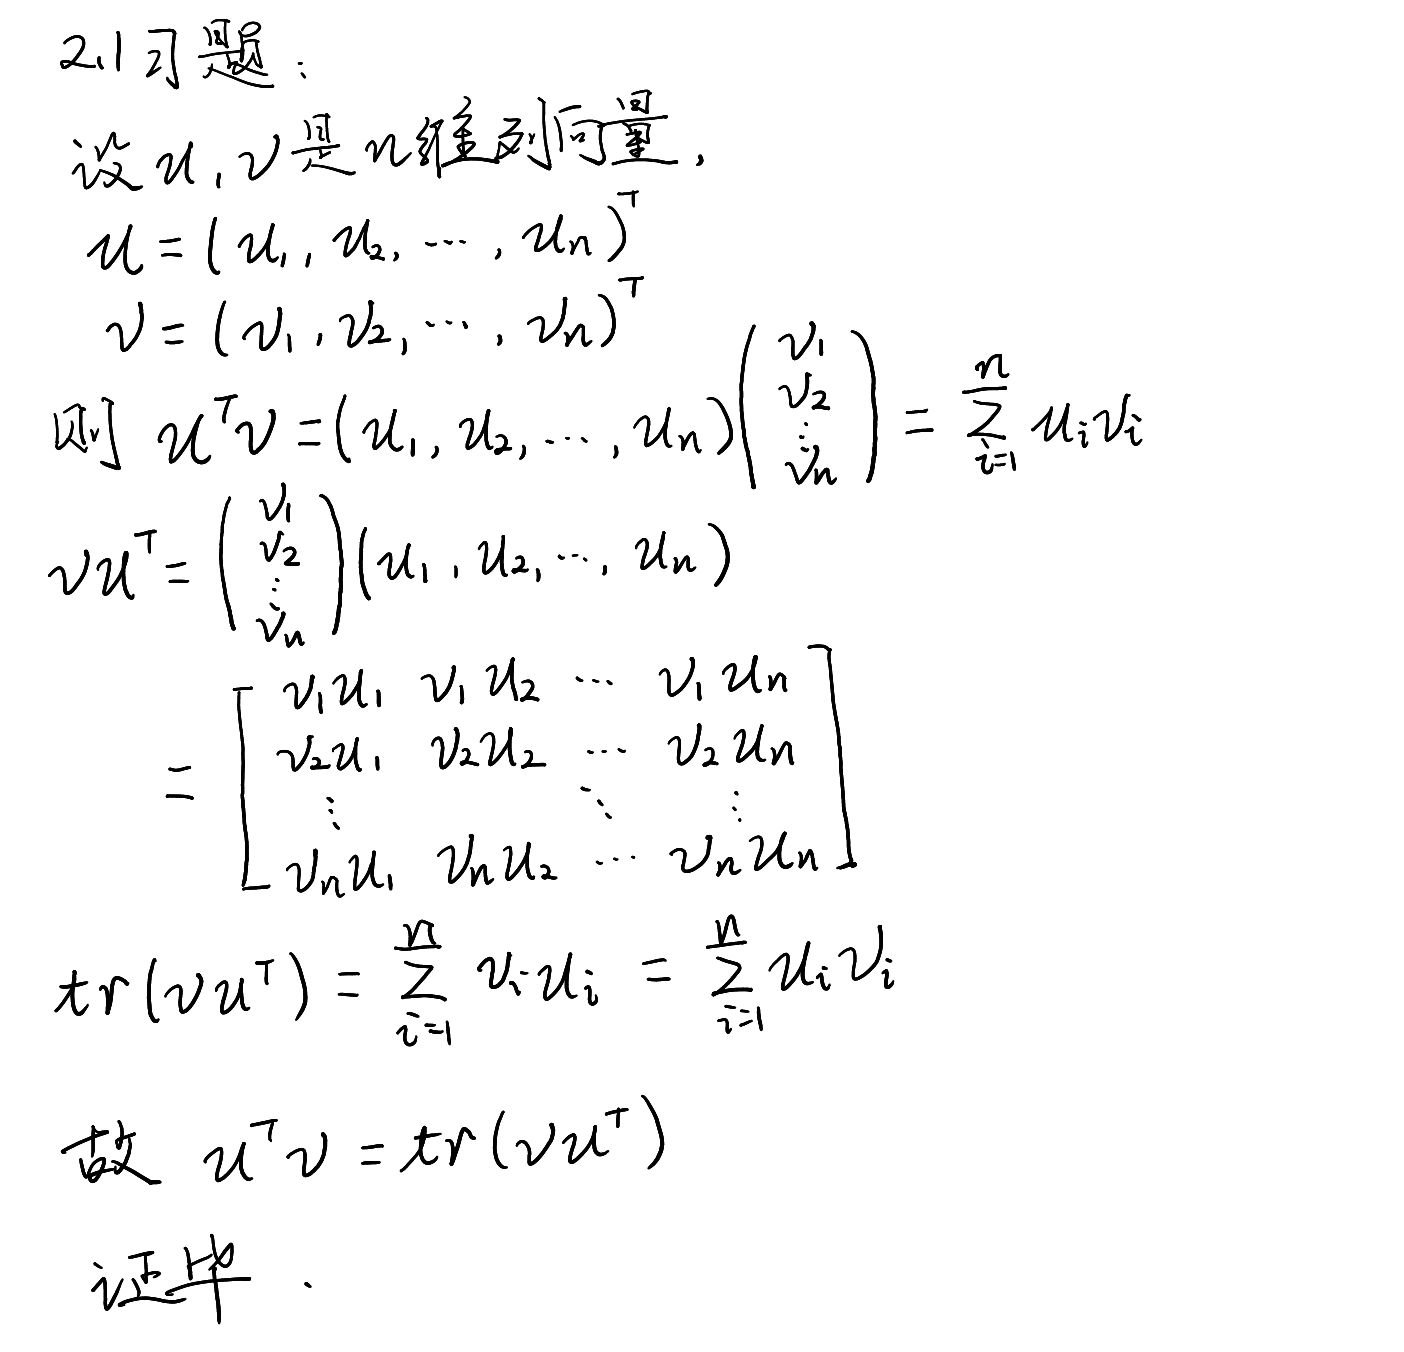 2.1习题:
设 u, v 是 n 维列向量,
u = (u₁, u₂, ⋯, uₙ)ᵀ
v = (v₁, v₂, ⋯, vₙ)ᵀ
则 uᵀv = (u₁, u₂, ⋯, uₙ) (v₁ v₂ ⋮ vₙ) = ∑ⁿᵢ₌₁ uᵢvᵢ
vuᵀ = (v₁ v₂ ⋮ vₙ) (u₁, u₂, ⋯, uₙ)
= [ v₁u₁ v₁u₂ ⋯ v₁uₙ
v₂u₁ v₂u₂ ⋯ v₂uₙ
⋮ ⋱ ⋮
vₙu₁ vₙu₂ ⋯ vₙuₙ ]
tr(vuᵀ) = ∑ⁿᵢ₌₁ vᵢuᵢ = ∑ⁿᵢ₌₁ uᵢvᵢ
故 uᵀv = tr(vuᵀ)
证毕.